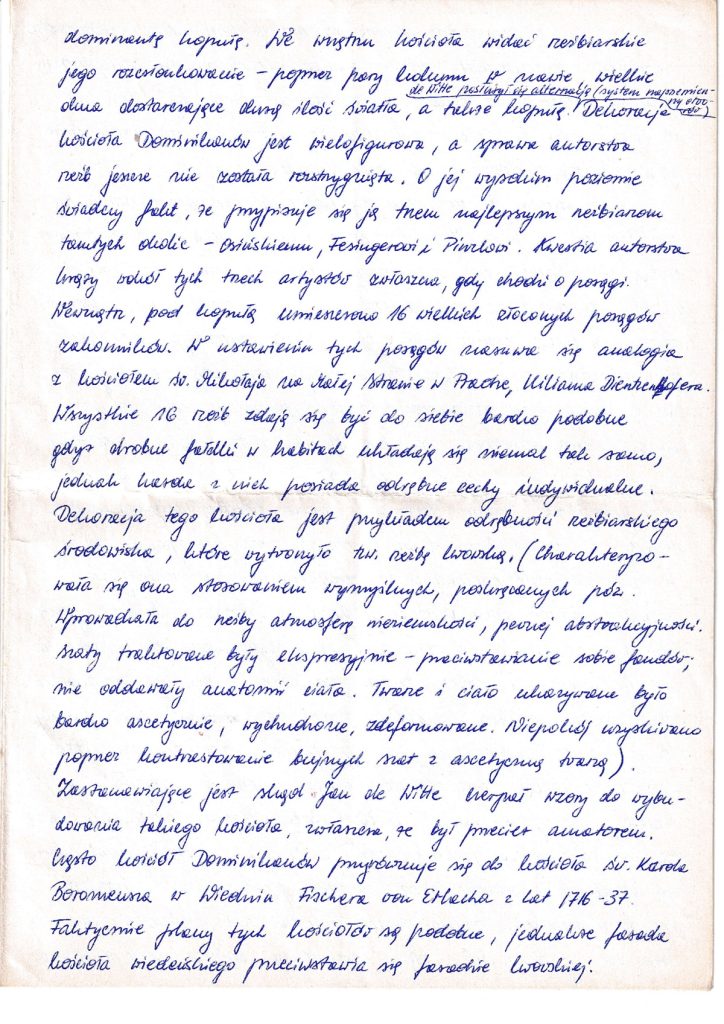 dominantę kopułę. We wnętrzu kościoła widać rzeźbiarskie
jego rozczłonkowanie – poprzez pary kolumn w nawie wielkie
de Witte posłużył się alternacją (system naprzemien-
ny otworów)
okna dostarczające dużą ilość światła, a także kopułę. Dekoracja
kościoła Dominikanów jest wielofigurowa, a sprawa autorstwa
rzeźb jeszcze nie została rozstrzygnięta. O jej wysokim poziomie
świadczy fakt, że przypisuje się ją trzem najlepszym rzeźbiarzom
tamtych okolic – Osińskiemu, Fesingerowi i Pinzlowi. Kwestia autorstwa
krąży wokół tych trzech artystów zwłaszcza, gdy chodzi o posągi.
Wewnątrz, pod kopułą umieszczono 16 wielkich złoconych posągów
zakonników. W ustawieniu tych posągów nasuwa się analogia
z kościołem św. Mikołaja na Małej Stranie w Pradze, Kiliana Dientzenhofera.
Wszystkie 16 rzeźb zdają się być do siebie bardzo podobne
gdyż drobne fałdki w habitach układają się niemal tak samo,
jednak każda z nich posiada odrębne cechy indywidualne.
Dekoracja tego kościoła jest przykładem odrębności rzeźbiarskiego
środowiska, które wytworzyło tzw. rzeźbę lwowską. (Charakteryzo-
wała się ona stosowaniem wymyślnych, poskręcanych póz.
Wprowadzała do rzeźby atmosferę nieziemskości, pewnej abstrakcyjności.
Szaty traktowane były ekspresyjnie – przeciwstawianie sobie fałdów;
nie oddawały anatomii ciała. Twarze i ciało ukazywane było
bardzo ascetycznie, wychudzone, zdeformowane. Niepokój uzyskiwano
poprzez kontrastowanie bujnych szat z ascetyczną twarzą).
Zastanawiające jest skąd Jan de Witte czerpał wzory do wybu-
dowania takiego kościoła, zwłaszcza, że był przecież amatorem.
Często kościół Dominikanów przyrównuje się do kościoła św. Karola
Boromeusza w Wiedniu Fischera von Erlacha z lat 1716-37.
Faktycznie plany tych kościołów są podobne, jednakże fasada
kościoła wiedeńskiego przeciwstawia się fasadzie lwowskiej.